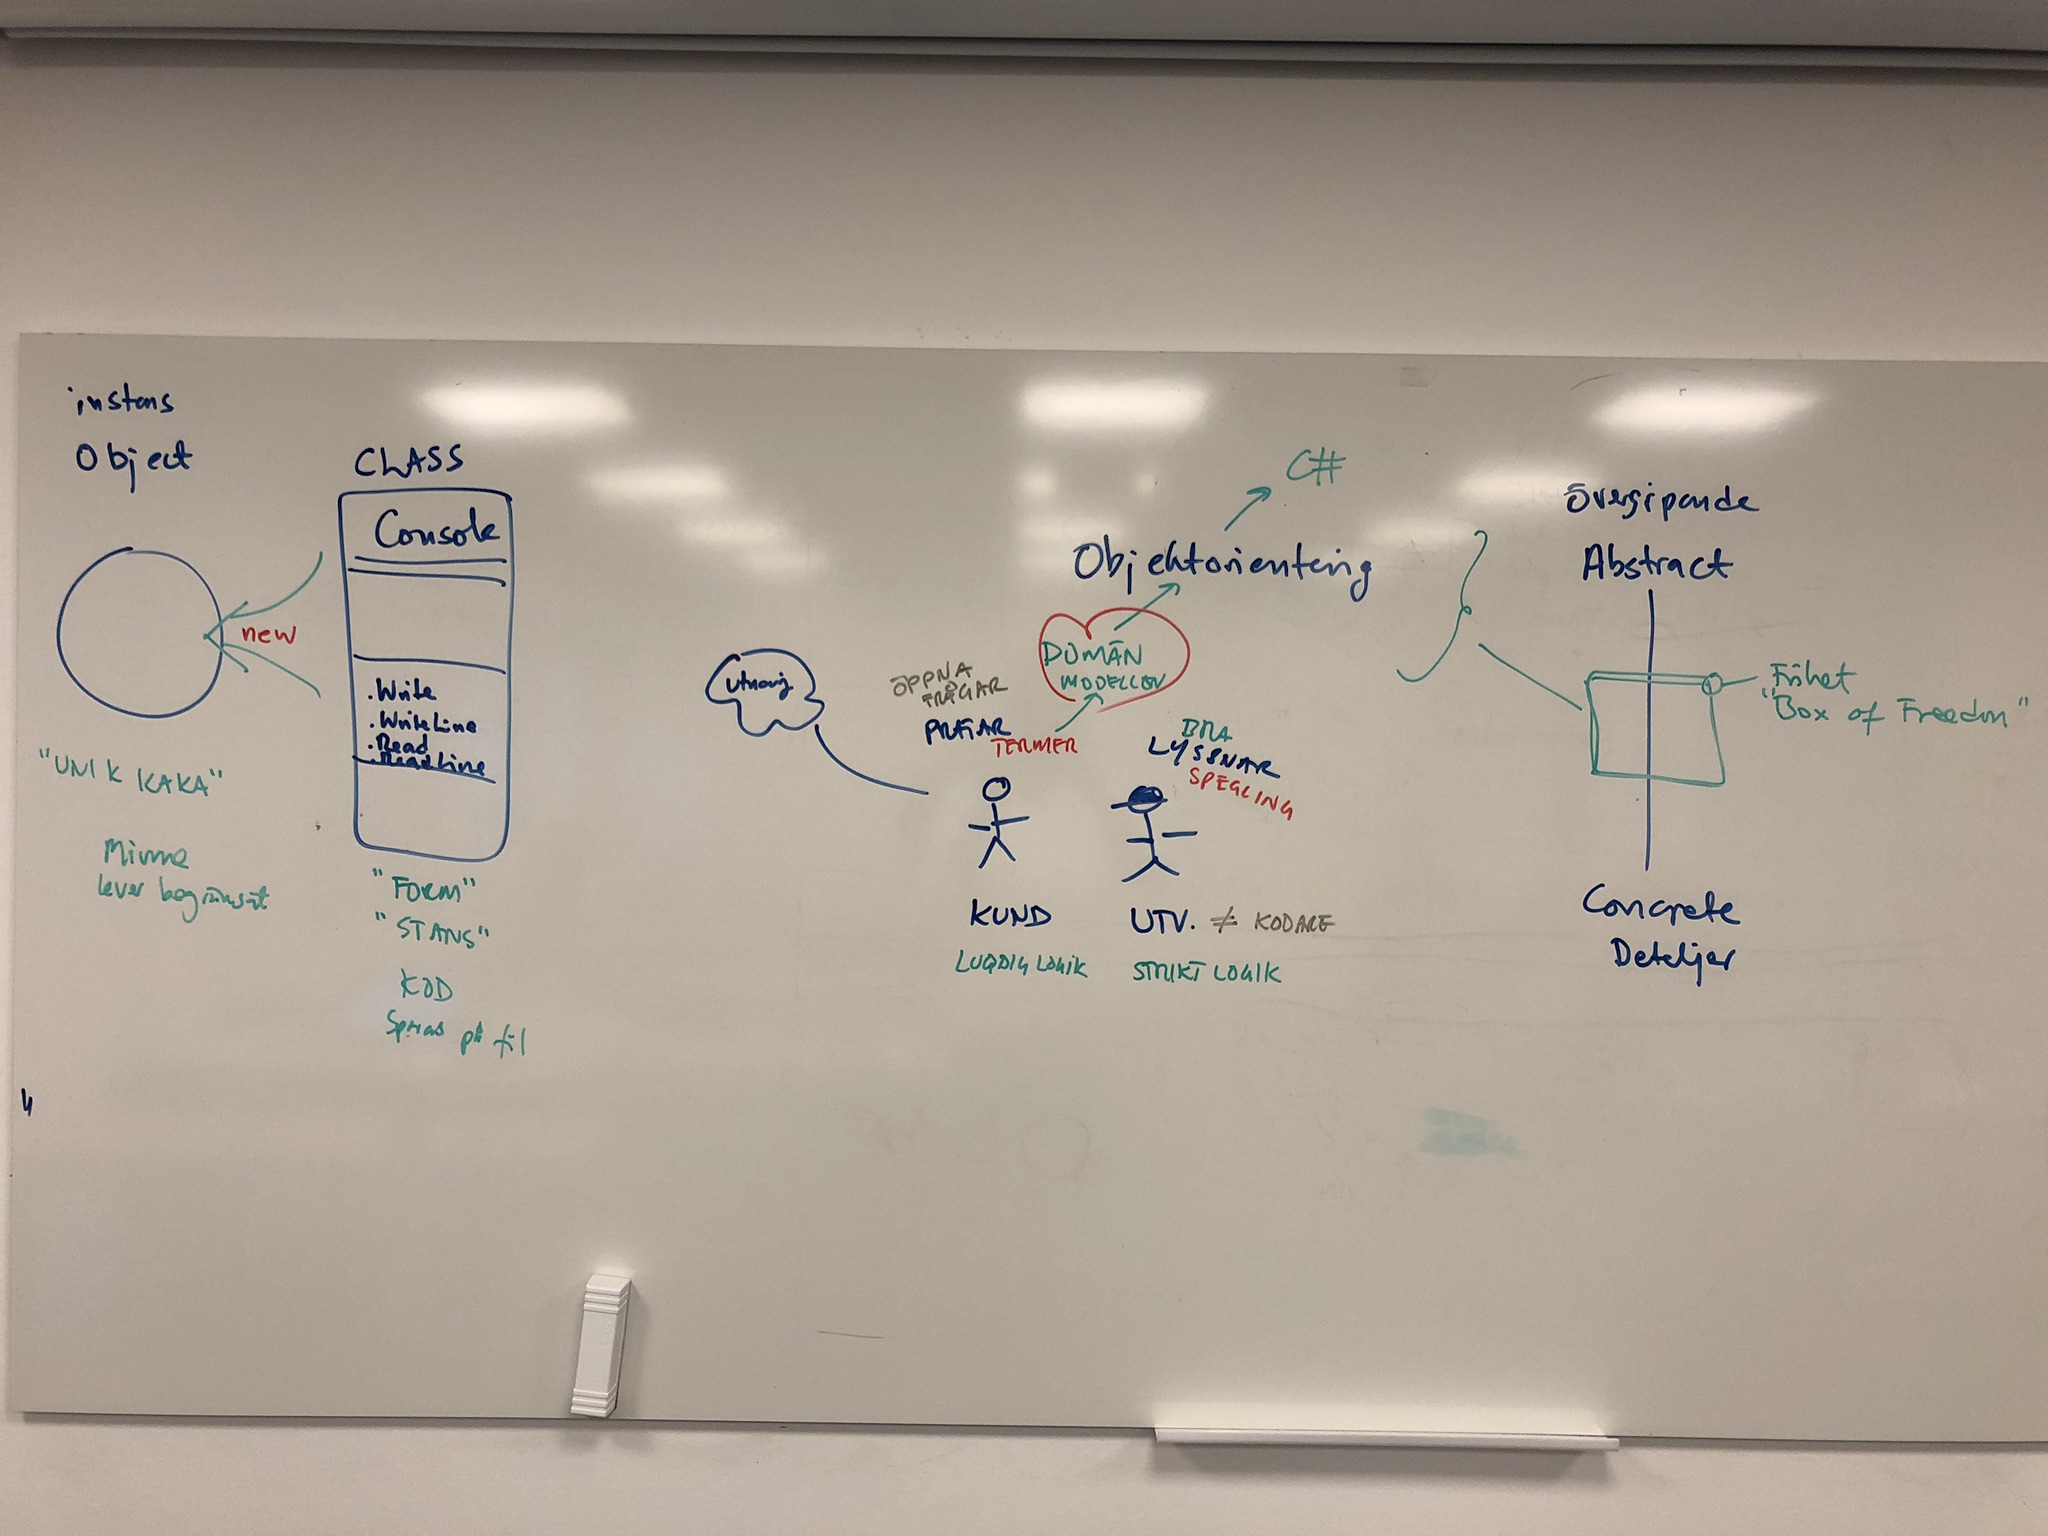 instans
Object
new
"UNIK KAKA"
Minne
lever begränsat
CLASS
Console
.Write
.WriteLine
.Read
.ReadLine
"FORM"
"STANS"
KOD
på fil
C#
Objektorientering
DOMÄN
MODELLEN
ÖPPNA
FRÅGAR
PRATAR
TERMER
BRA
LYSSNAR
SPEGLING
KUND
LUDDIG LOGIK
UTV. ≠ KODARE
STRIKT LOGIK
Övergipande
Abstract
Frihet
"Box of Freedom"
Concrete
Deteljer